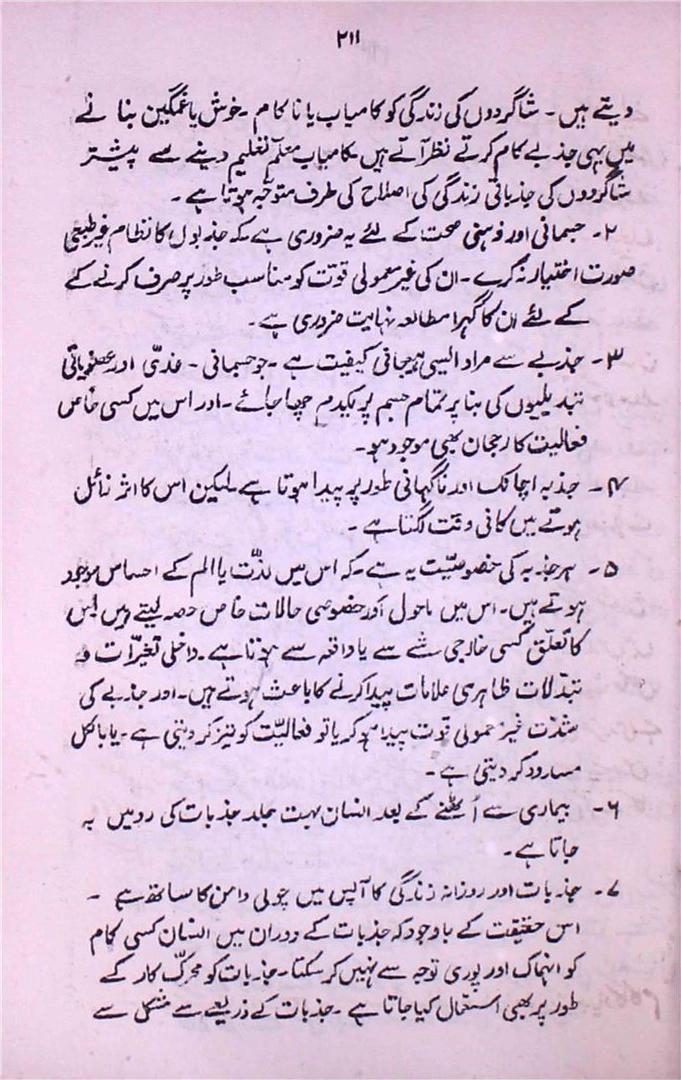 ۲۱۱
دیتے ہیں ۔ شاگردوں کی زندگی کو کامیاب یا ناکام ۔ خوش یا غمگین بنانے
میں یہی جذبے کام کرتے نظر آتے ہیں ۔ کامیاب معلّم تعلیم دینے سے پیشتر
شاگردوں کی جذباتی زندگی کی اصلاح کی طرف متوجّہ ہوتا ہے ۔
۲۔ جسمانی اور ذہنی صحت کے لئے یہ ضروری ہے ۔ کہ جذبوں کا نظام غیر طبعی
صورت اختیار نہ کرے ۔ ان کی غیر معمولی قوّت کو مناسب طور پر صرف کرنے کے
کے لئے ان کا گہرا مطالعہ نہایت ضروری ہے ۔
۳۔ جذبے سے مراد ایسی ہیجانی کیفیت ہے ۔ جو جسمانی ۔ غدّی اور عضویاتی
تبدیلیوں کی بنا پر تمام جسم پر یکدم چھا جائے ۔ اور اس میں کسی خاص
فعالیت کا رجحان بھی موجود ہو ۔
۴۔ جذبہ اچانک اور ناگہانی طور پر پیدا ہوتا ہے ۔ لیکن اس کا اثر زائل
ہوتے میں کافی وقت لگتا ہے ۔
۵۔ ہر جذبہ کی خصوصیّت یہ ہے ۔ کہ اس میں لذّت یا الم کے احساس موجود
ہوتے ہیں ۔ اس میں ماحول اور خصوصی حالات خاص حصہ لیتے ہیں اس
کا تعلق کسی خارجی شے سے یا واقعہ سے ہوتا ہے ۔ داخلی تغیّرات و
تبدّلات ظاہری علامات پیدا کرنے کا باعث ہوتے ہیں ۔ اور جذبے کی
شدّت غیر معمولی قوت پیدا ہو کر یا تو فعالیّت کو تیز کر دیتی ہے ۔ یا بالکل
مسدود کر دیتی ہے ۔
۶۔ بیماری سے اُٹھنے کے بعد انسان بہت جلد جذبات کی رو میں بہ
جاتا ہے ۔
۷۔ جذبات اور روزانہ زندگی کا آپس میں چولی دامن کا ساتھ ہے ۔
اس حقیقت کے باوجود کہ جذبات کے دوران میں انسان کسی کام
کو انہماک اور پوری توجہ سے نہیں کر سکتا ۔ جذبات کو محرکِ کار کے
طور پر بھی استعمال کیا جاتا ہے ۔ جذبات کے ذریعے سے مشکل سے